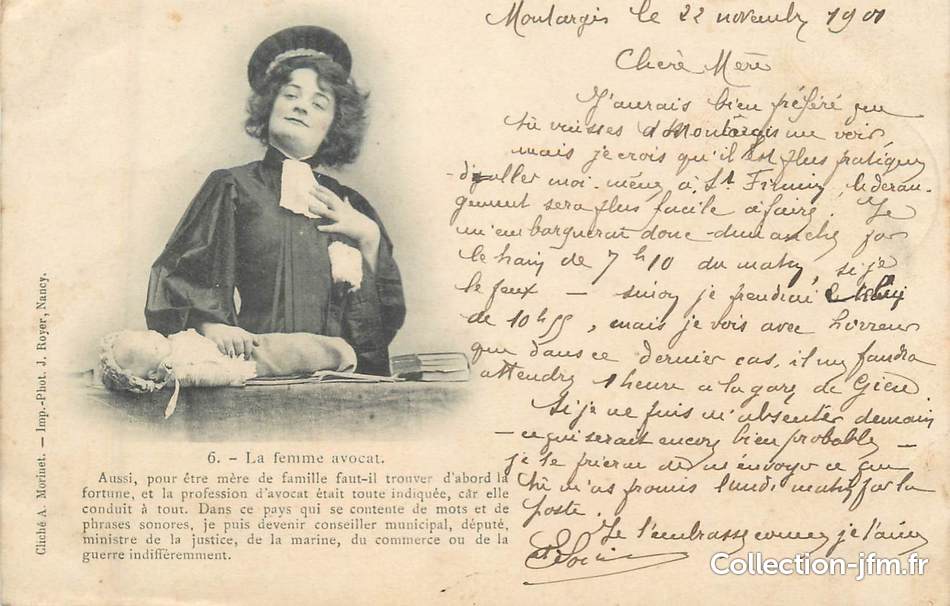 Montargis le 22 novembre 1901
Chère Mère
J'aurais bien préféré que
tu vinsses à Montargis me voir
mais je crois qu'il est plus pratique
d'aller moi-même à St Firmin, le déran-
gement sera plus facile à faire. Je
m'embarquerai donc dimanche par
le train de 7h10 du matin, si je
le peux — sinon je prendrai celui
de 10h55, mais je vois avec horreur
que dans ce dernier cas, il me faudra
attendre 1 heure à la gare de Gien.
Si je ne puis m'absenter demain
— ce qui serait encore bien probable —
je te prierai de m'envoyer ce que
tu m'as promis lundi matin par la
poste.
Je t'embrasse comme je t'aime
6. - La femme avocat.
Aussi, pour être mère de famille faut-il trouver d'abord la
fortune, et la profession d'avocat était toute indiquée, car elle
conduit à tout. Dans ce pays qui se contente de mots et de
phrases sonores, je puis devenir conseiller municipal, député,
ministre de la justice, de la marine, du commerce ou de la
guerre indifféremment.
Cliché A. Morinet. — Imp.-Phot. J. Royer, Nancy.
Collection-jfm.fr